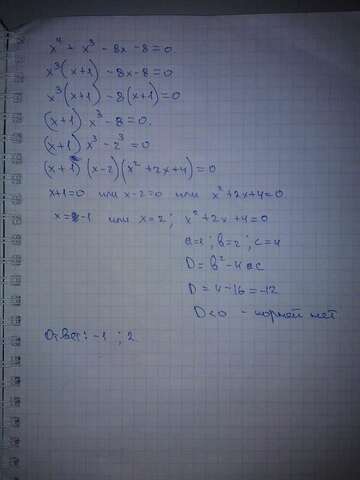 x⁴ + x³ - 8x - 8 = 0
x³(x+1) - 8x - 8 = 0
x³(x+1) - 8(x+1) = 0
(x+1) x³ - 8 = 0.
(x+1) x³ - 2³ = 0
(x+1)(x-2)(x² + 2x + 4) = 0
x+1=0 или x-2=0 или x² + 2x + 4 = 0
x = -1 или x = 2; x² + 2x + 4 = 0
a=1; b=2; c=4
D = b² - 4ac
D = 4 - 16 = -12
D < 0 - корней нет
Ответ: -1; 2.